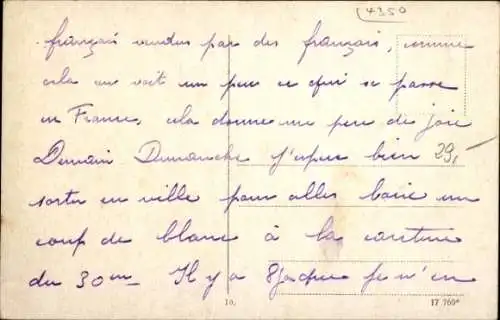 4350
français vendus par des français, comme
cela on voit un peu ce qui se passe
en France, cela donne un peu de joie
Demain Dimanche j'espère bien 29,-
sortir en ville pour aller boire un
coup de blanc à la cantine
du 30em Il y a 8 jo que je n'en
10. 17 769*